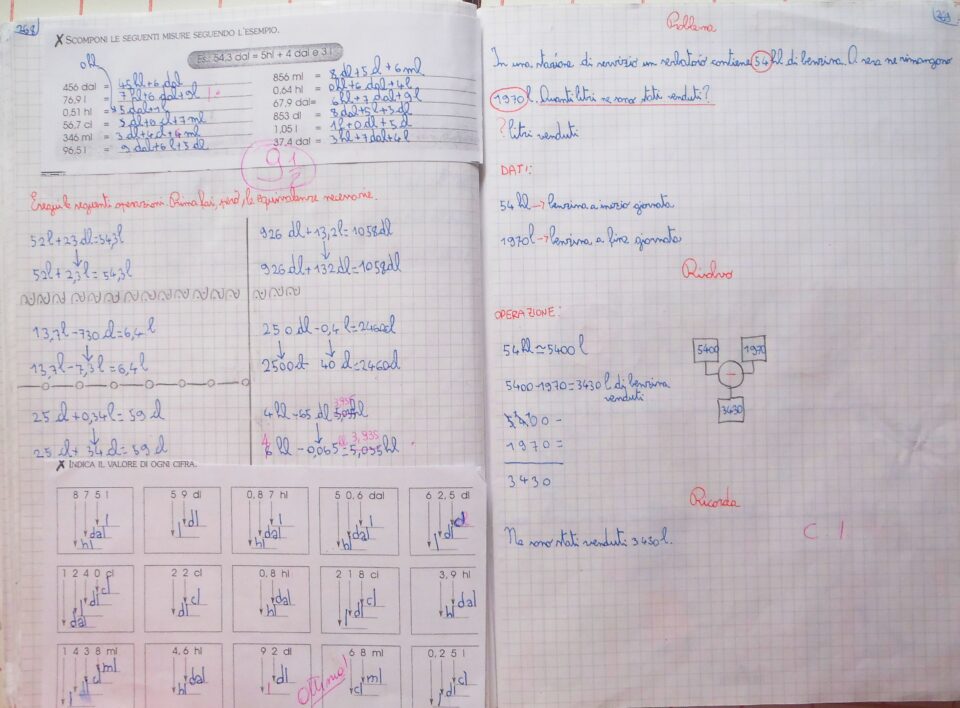 268
X SCOMPONI LE SEGUENTI MISURE SEGUENDO L'ESEMPIO.
Es.: 54,3 dal = 5hl + 4 dal e 3 l
0hl
456 dal = 45hl+6dal
76,9 l = 7hl+6dal+9l
0,51 hl = +5dal+1l
56,7 cl =
346 ml = 3dl+4cl+6ml
96,5 l = 9dal+6l+5dl
856 ml = 8dl+5cl+6ml
0,64 hl = 0hl+6dal+4l
67,9 dal= 6hl+7dal+9l
853 dl = 8dal+5l+3dl
1,05 l = 1l+0dl+5cl
37,4 dal = 3hl+7dal+4l
9 1/2
Esegui le seguenti operazioni. Prima fai, però, le equivalenze necessarie.
52l+23dl=54,3l
52l+2,3l=54,3l
13,7l-730cl=6,4l
13,7l-7,3l=6,4l
25cl+0,34l=59cl
25cl+34cl=59cl
926dl+13,2l=1058dl
926dl+132dl=1058dl
250dl-0,4l=2460cl
2500cl-40cl=2460cl
4hl-65dl
hl-0,065= hl
X INDICA IL VALORE DI OGNI CIFRA.
8 7 5 l
l
dal
hl
5 9 dl
dl
l
0,8 7 hl
l
dal
hl
5 0,6 dal
l
dal
hl
6 2,5 dl
cl
dl
l
1 2 4 0 cl
cl
dl
l
dal
2 2 cl
cl
dl
0,8 hl
dal
hl
2 1 8 cl
cl
dl
l
3,9 hl
dal
hl
1 4 3 8 ml
ml
cl
dl
l
4,6 hl
dal
hl
9 2 dl
dl
l
6 8 ml
ml
cl
0,2 5 l
cl
dl
l
Ottimo!
269
Problema
In una stazione di servizio un serbatoio contiene 54hl di benzina. A sera ne rimangono
1970l. Quanti litri ne sono stati venduti?
? litri venduti
DATI:
54hl→benzina a inizio giornata
1970l→benzina a fine giornata
Risolvo
OPERAZIONE:
54hl=5400l
5400-1970=3430l di benzina
venduti
5400-
1970=
3430
5400
1970
-
3430
Ricorda
Ne sono stati venduti 3430l.
C. I